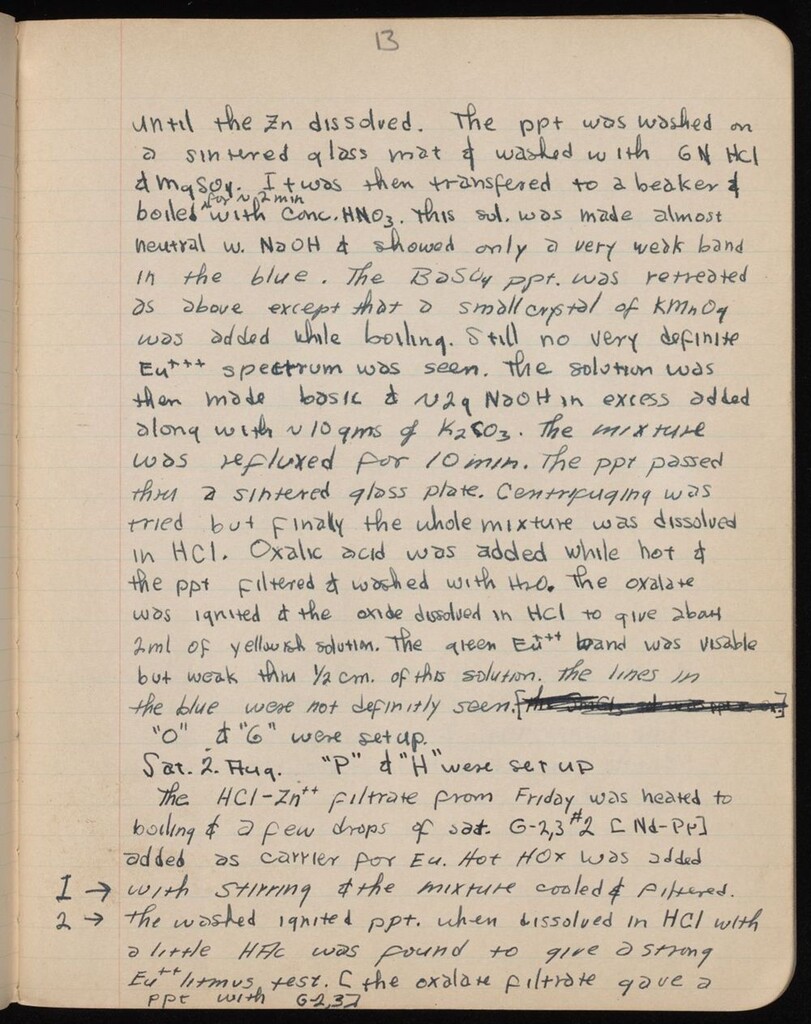 13
until the Zn dissolved. The ppt was washed on
a sintered glass mat & washed with 6N HCl
& MgSO4. It was then transfered to a beaker &
for ~ 2 min
boiled with conc. HNO3. This sol. was made almost
neutral w. NaOH & showed only a very weak band
in the blue. The BaSO4 ppt. was retreated
as above except that a small crystal of KMnO4
was added while boiling. Still no very definite
Eu+++ spectrum was seen. The solution was
then made basic & ~2g NaOH in excess added
along with ~10 gms of K2CO3. The mixture
was refluxed for 10 min. The ppt passed
thru a sintered glass plate. Centrifuging was
tried but finally the whole mixture was dissolved
in HCl. Oxalic acid was added while hot &
the ppt filtered & washed with H2O. The oxalate
was ignited & the oxide dissolved in HCl to give about
2ml of yellowish solution. The green Eu+++ band was visable
but weak thru 1/2 cm. of this solution. The lines in
the blue were not definitly seen.
"O" & "G" were set up.
Sat. 2. Aug. "P" & "H" were set up
The HCl-Zn++ filtrate from Friday was heated to
boiling & a few drops of sat. G-2,3 #2 [Nd-Pr]
added as carrier for Eu. Hot HOx was added
1 → with stirring & the mixture cooled & filtered.
2 → The washed ignited ppt. when dissolved in HCl with
a little HAc was found to give a strong
Eu++ litmus test. [the oxalate filtrate gave a
ppt with G-2,3]